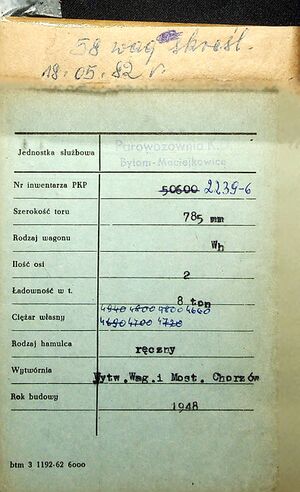 58 wag skreśl.
18.05.82 r.
Jednostka służbowa Parowozownia K.D.
Bytom-Maciejkowice
Nr inwentarza PKP 50600 2239-6
Szerokość toru 785 mm
Rodzaj wagonu Wh
Ilość osi 2
Ładowność w t. 8 ton
Ciężar własny 4940 4800 4800 4660
4690 4700 4720
Rodzaj hamulca ręczny
Wytwórnia Wytw.Wag.i Most. Chorzów
Rok budowy 1948
btm 3 1192-62 6000